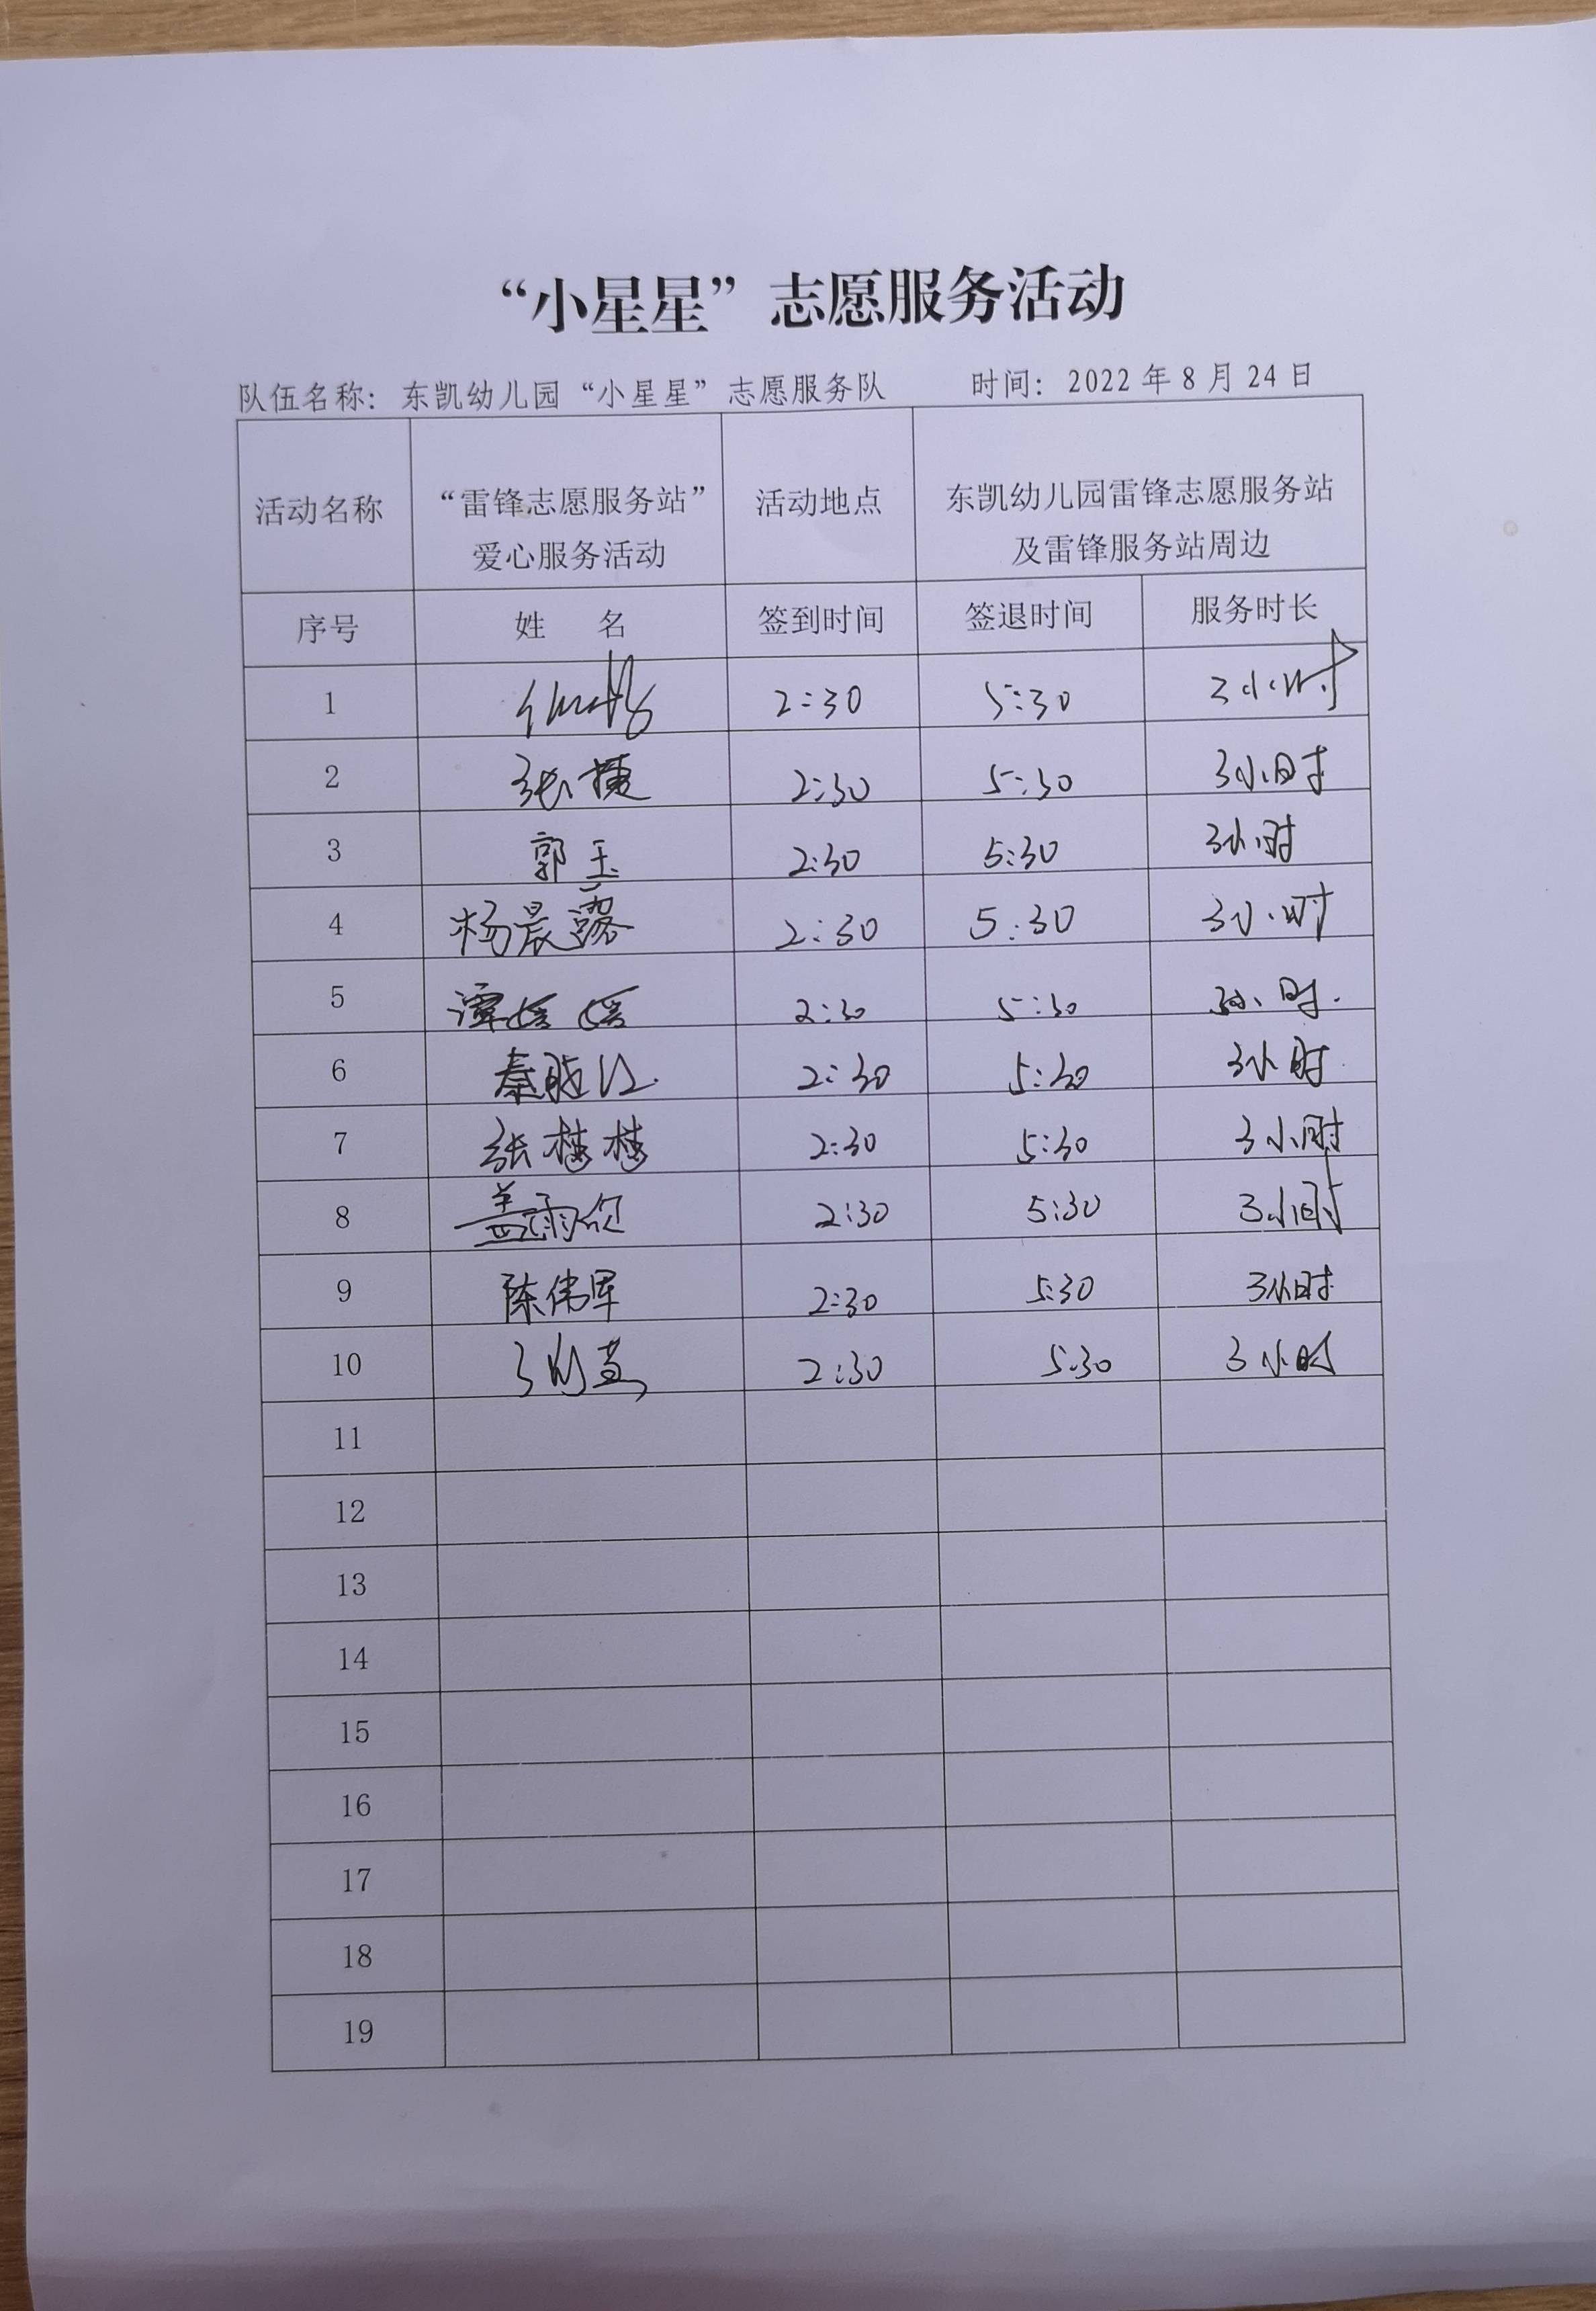 “小星星”志愿服务活动
队伍名称：东凯幼儿园“小星星”志愿服务队 时间：2022年8月24日
活动名称 “雷锋志愿服务站” 活动地点 东凯幼儿园雷锋志愿服务站
爱心服务活动 及雷锋服务站周边
序号 姓 名 签到时间 签退时间 服务时长
1 2:30 5:30 3小时
2 张捷 2:30 5:30 3小时
3 郭玉 2:30 5:30 3小时
4 杨晨露 2:30 5:30 3小时
5 谭媛媛 2:30 5:30 3小时.
6 秦 2:30 5:30 3小时
7 张楼楼 2:30 5:30 3小时
8 盖雨欣 2:30 5:30 3小时
9 陈伟军 2:30 5:30 3小时
10 2:30 5:30 3小时
11
12
13
14
15
16
17
18
19